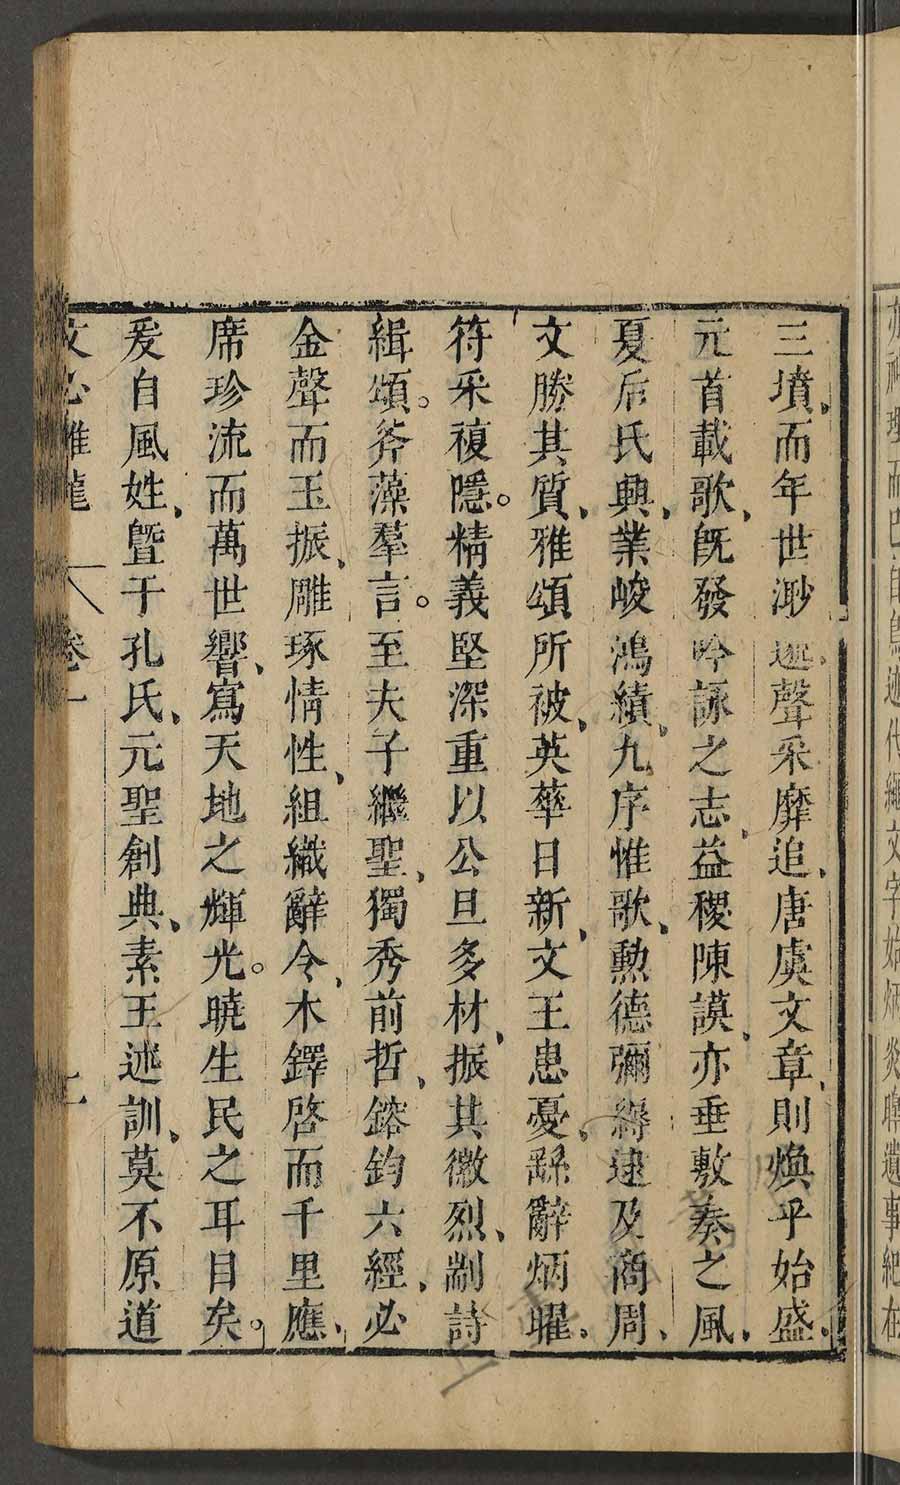 亦神理而已自鳥迹代繩文字始炳炎皞遺事紀在
三墳、而年世渺邈、聲采靡追、唐虞文章、則煥乎始盛、
元首載歌、旣發吟詠之志、益稷陳謨、亦垂敷奏之風、
夏后氏興、業峻鴻績、九序惟歌、勲德彌縟、逮及商周、
文勝其質、雅頌所被、英華日新、文王患憂、繇辭炳曜、
符采複隱。精義堅深重以公旦多材、振其徽烈、剬詩
緝頌。斧藻羣言。至夫子繼聖、獨秀前哲、鎔鈞六經、必
金聲而玉振、雕琢情性、組織辭令、木鐸啓而千里應、
席珍流而萬世響、寫天地之輝光。曉生民之耳目矣。
爰自風姓、曁于孔氏、元聖創典、素王述訓、莫不原道
文心雕龍 卷一